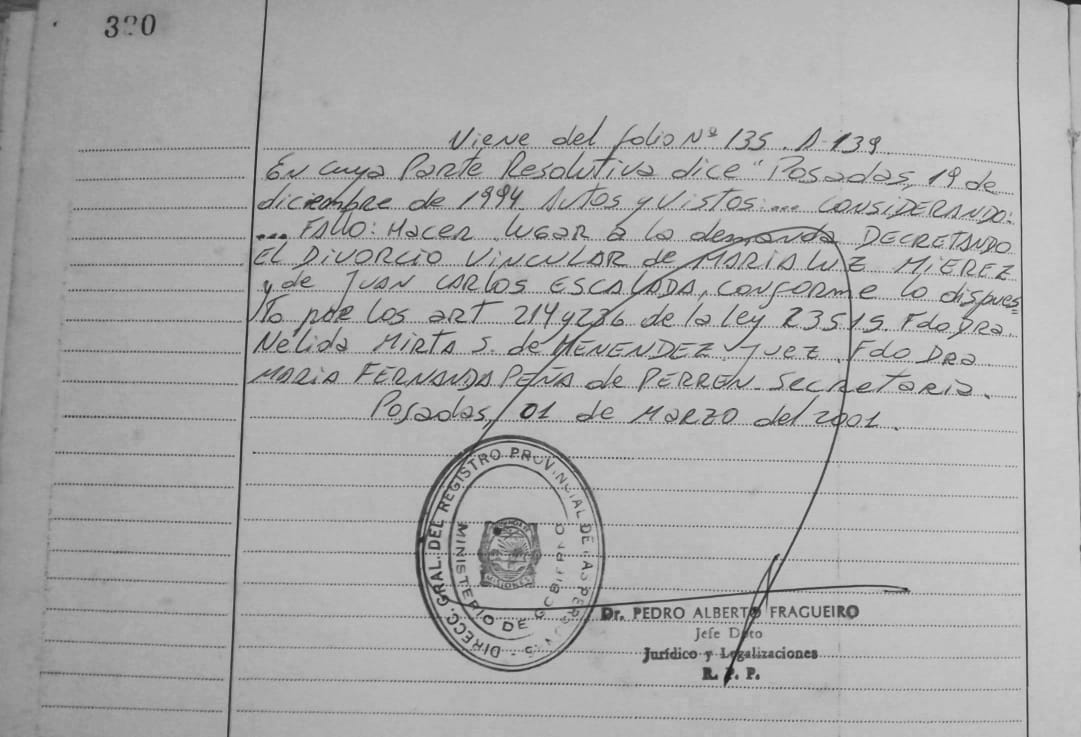 Viene del folio Nº 135. A 139
En cuya Parte Resolutiva dice "Posadas, 19 de
diciembre de 1994 Autos y Vistos: ... CONSIDERANDO:
... FAllo: Hacer lugar a la demanda DECRETANDO
El DIVORCIO VINCULAR de MARIA LUZ MIEREZ
y de JUAN CARLOS ESCALADA, conforme lo dispues=
To por los art 214 y 236 de la ley 23515. Fdo DRA.
Nélida Mirta S. de MENENDEZ. Juez. Fdo DRA
MARIA FERNANDA PEÑA de PERREN. Secretaria.
Posadas, 01 de MARZO del 2001.
DIRECC. GRAL. DEL REGISTRO PROVINCIAL DE LAS PERSONAS
MINISTERIO DE GOBIERNO
MISIONES
Dr. PEDRO ALBERTO FRAGUEIRO
Jefe Dpto
Jurídico y Legalizaciones
R. P. P.